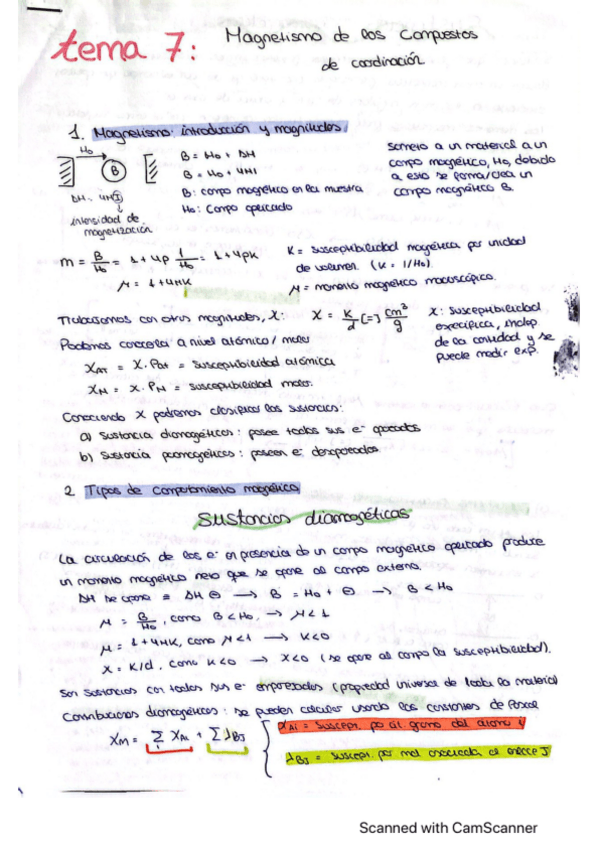 tema 7:
Magnetismo de los Compuestos
de coordinación
1. Magnetismo: introducción y magnitudes.
Ho
B
B = Ho + ΔH
B = Ho + 4πI
B: campo magnético en la muestra
Ho: Campo aplicado
ΔH = 4πI
intensidad de
magnetización
someto a un material a un
campo magnético, Ho, debido
a esto se forma/crea un
campo magnético B.
m = B/Ho = 1 + 4p I/Ho = 1 + 4pK
μ = 1 + 4πK
K = susceptibilidad magnética por unidad
de volumen. (K = I/Ho).
μ = momento magnético macroscópico.
Trabajamos con otras magnitudes, X:
X = K/d (=) cm³/g
X: susceptibilidad
específica, indep
de la cantidad y se
puede medir exp.
Podemos conocerla a nivel atómico/molar
XAT = X · Pat = susceptibilidad atómica
XM = X · PM = susceptibilidad molar.
Conociendo X podremos clasificar las sustancias:
a) Sustancia diamagéticas: posee todos sus e- apareados
b) Sustancia paramagéticas: poseen e- desapareados.
2 Tipos de comportamiento magnético
Sustancias diamagéticas
La circulación de los e- en presencia de un campo magnético aplicado produce
un momento magnético neto que se opone al campo externo.
ΔH se opone = ΔH ⊖ → B = Ho + ⊖ → B < Ho
μ = B/Ho, como B < Ho, → μ < 1
μ = 1 + 4πK, como μ < 1 → K < 0
X = K/d, como K < 0 → X < 0 (se opone al campo la susceptibilidad).
Son sustancias con todos sus e- emparejados (propiedad universal de toda la materia)
Contribuciones diamagéticas: se pueden calcular usando las constantes de Pascal
XM = Σi XAi + Σ λBJ
XAi = suscept. por át. gramo del átomo i
λBJ = suscept. por mol asociada al enlace J
Scanned with CamScanner